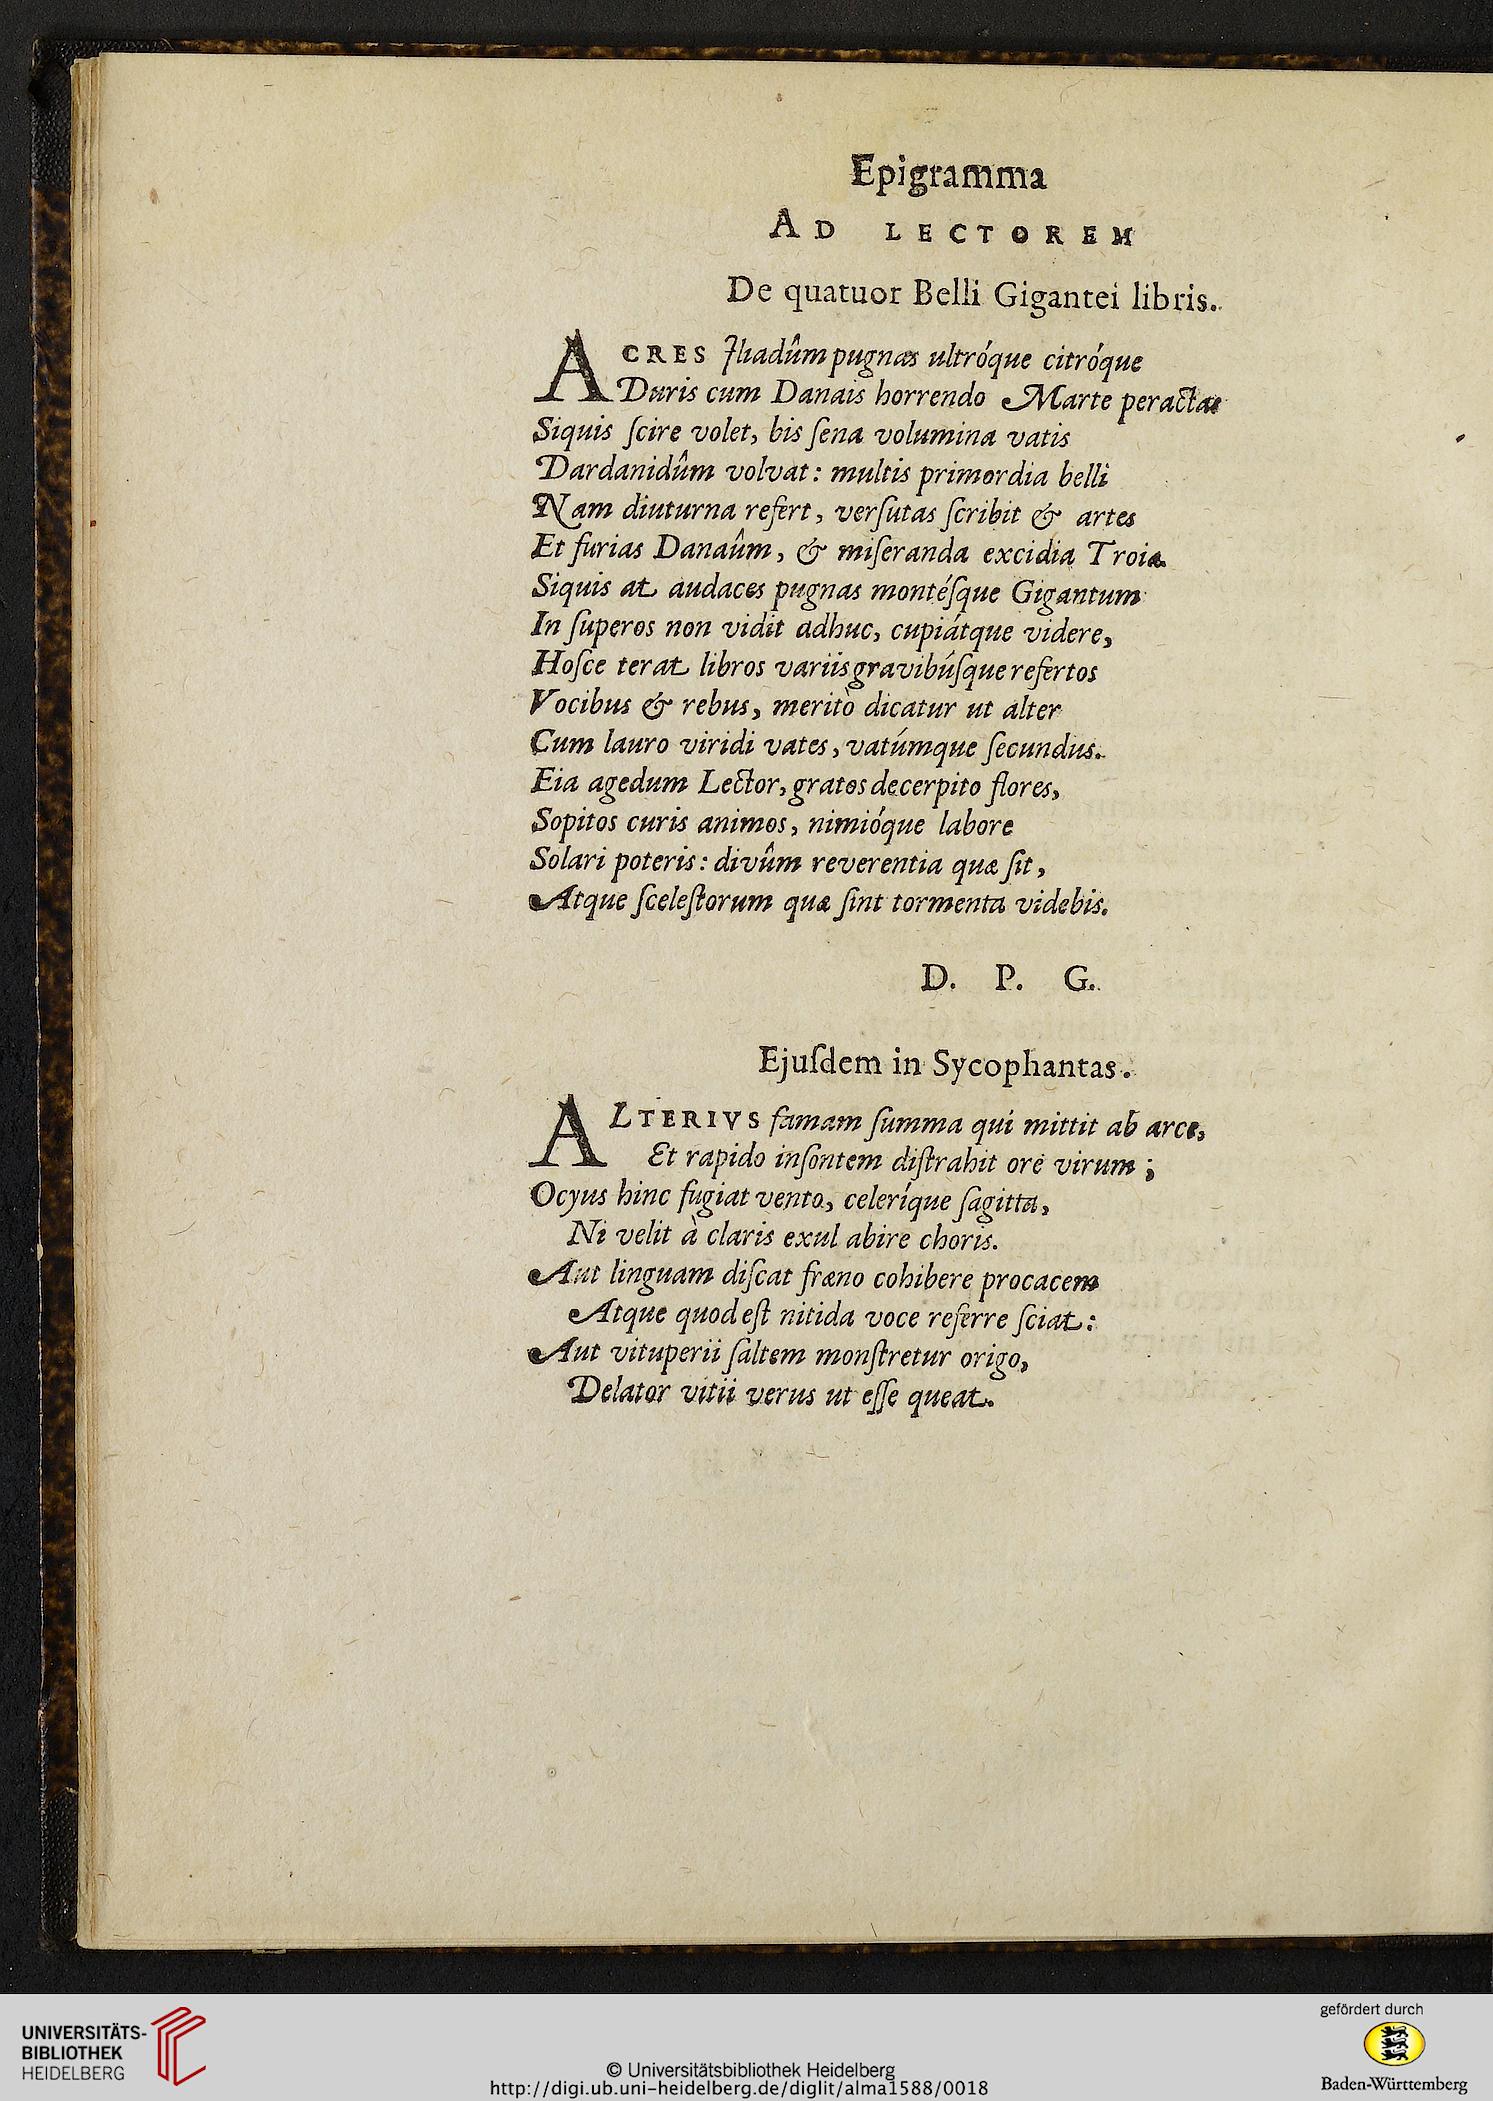 Epigramma
AD LECTOREM
De quatuor Belli Gigantei libris.
ACRES Iliadûm pugnas ultróque citróque
Duris cum Danais horrendo Marte peractas
Siquis ſcire volet, bis ſena volumina vatis
Dardanidûm volvat: multis primordia belli
Nam diuturna refert, verſutas ſcribit & artes
Et furias Danaûm, & miſeranda excidia Troiæ.
Siquis at audaces pugnas montéſque Gigantum
In ſuperos non vidit adhuc, cupiátque videre,
Hoſce terat libros variis gravibúſque refertos
Vocibus & rebus, meritò dicatur ut alter
Cum lauro viridi vates, vatúmque ſecundus.
Eia agedum Lector, gratos decerpito flores,
Sopitos curis animos, nimióque labore
Solari poteris: divûm reverentia quæ ſit,
Atque ſceleſtorum quæ ſint tormenta videbis.
D. P. G.
Ejuſdem in Sycophantas.
ALTERIVS famam ſumma qui mittit ab arce,
Et rapido inſontem diſtrahit ore virum;
Ocyus hinc fugiat vento, celeríque ſagitta,
Ni velit à claris exul abire choris.
Aut linguam diſcat fræno cohibere procacem
Atque quod eſt nitida voce referre ſciat:
Aut vituperii ſaltem monſtretur origo,
Delator vitii verus ut eſſe queat.
UNIVERSITÄTS-
BIBLIOTHEK
HEIDELBERG
© Universitätsbibliothek Heidelberg
http://digi.ub.uni-heidelberg.de/diglit/alma1588/0018
gefördert durch
Baden-Württemberg